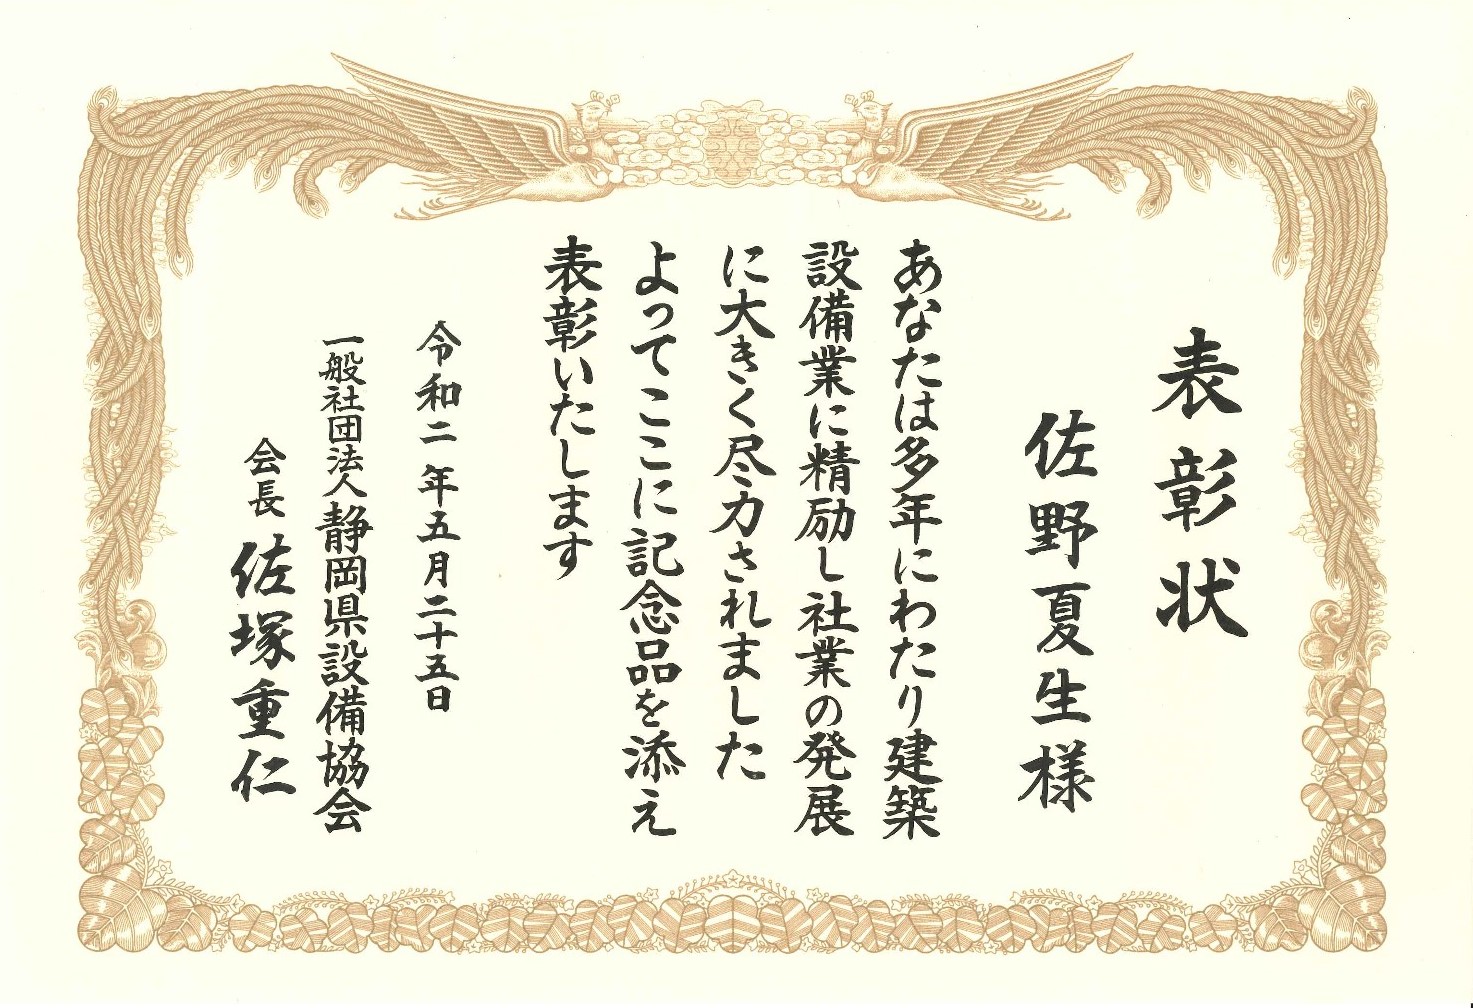 表彰状
佐野夏生様
あなたは多年にわたり建築
設備業に精励し社業の発展
に大きく尽力されました
よってここに記念品を添え
表彰いたします
令和二年五月二十五日
一般社団法人静岡県設備協会
会長 佐塚重仁